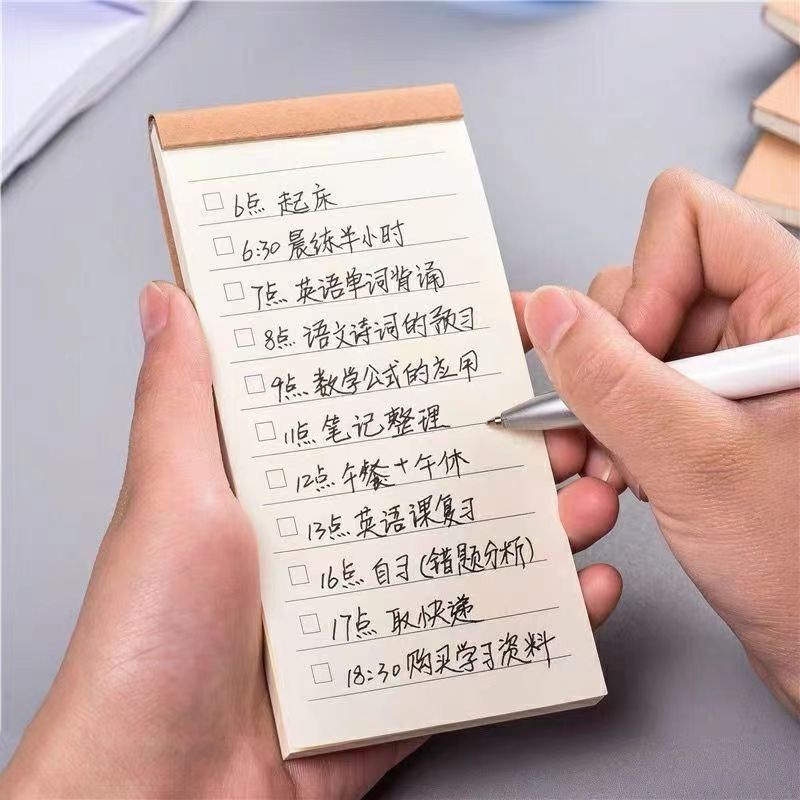 6点 起床
6:30 晨练半小时
7点 英语单词背诵
8点 语文诗词的预习
9点 数学公式的应用
11点 笔记整理
12点 午餐+午休
13点 英语课复习
16点 自习(错题分析)
17点 取快递
18:30 购买学习资料